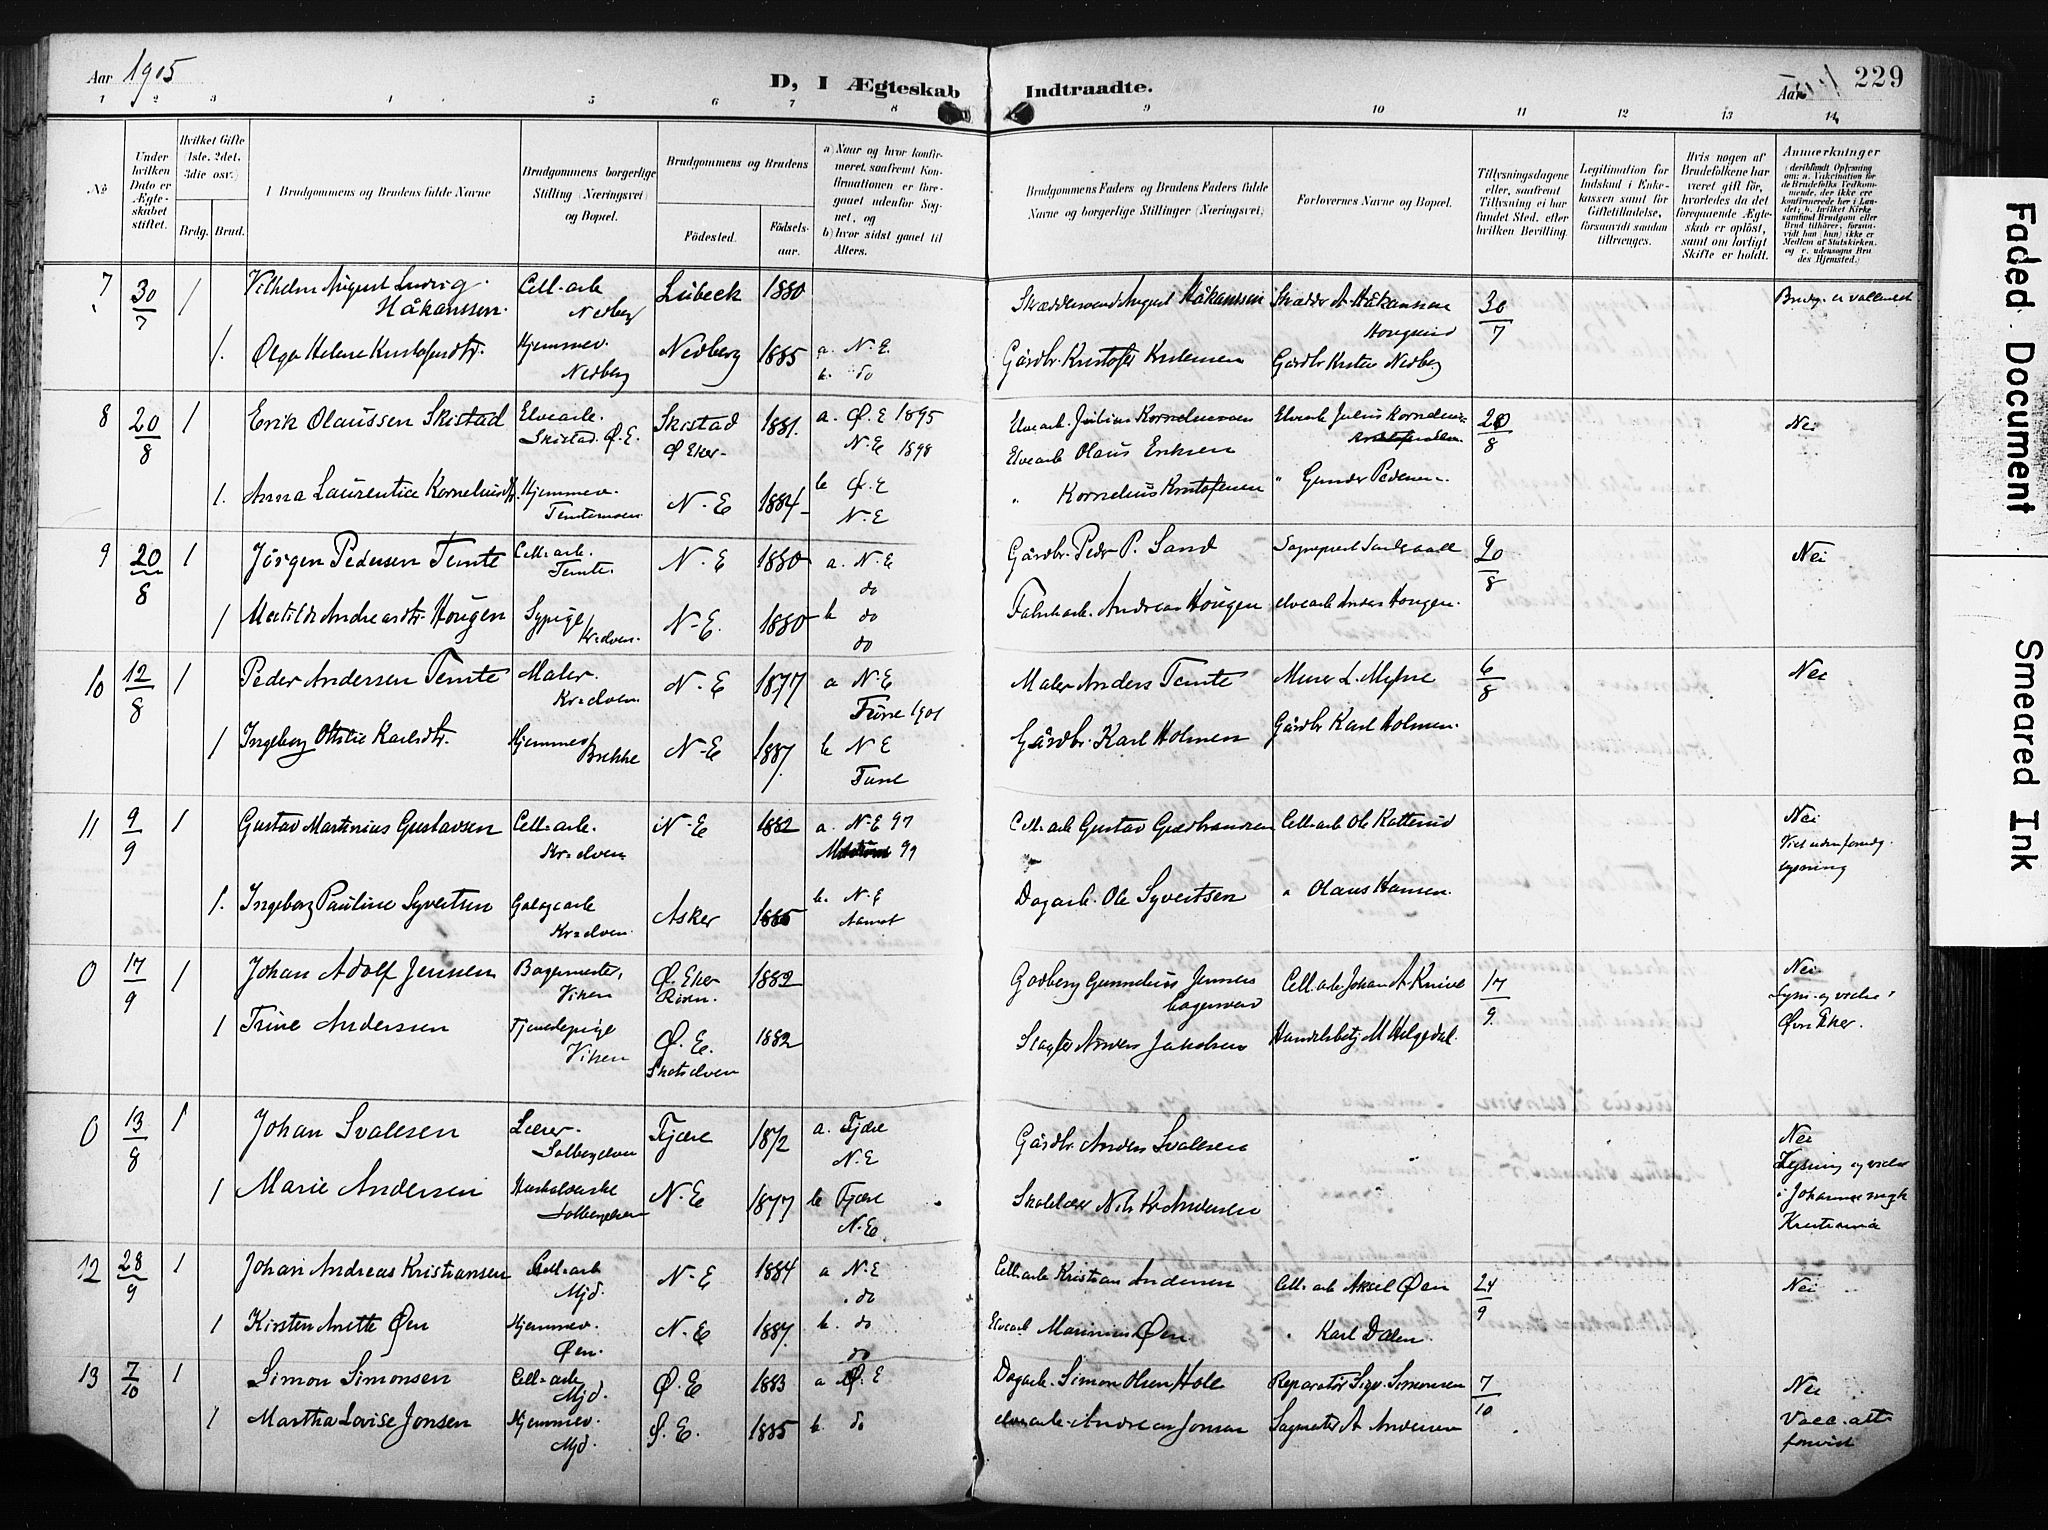 Aar 1905
D, I Ægteskab Indtraadte.
Aar
229
1 2 3 4 5 6 7 8 9 10 11 12 13 14
No
Under hvilken Dato er Ægteskabet stiftet.
Hvilket Gifte (1ste, 2det, 3die osv.)
Brdg. Brud.
Brudgommens og Brudens fulde Navne
Brudgommens borgerlige Stilling (Næringsvei) og Bopæl.
Brudgommens og Brudens
Fødested.
Fødselsaar.
a) Naar og hvor konfirmeret, saafremt Konfirmationen er foregaaet udenfor Sognet, og
b) hvor sidst gaaet til Alters.
Brudgommens Faders og Brudens Faders fulde Navne og borgerlige Stillinger (Næringsvei)
Forlovernes Navne og Bopæl.
Tillysningsdagene eller, saafremt Tillysning ei har fundet Sted, efter hvilken Bevilling.
Legitimation for Indskud i Enkekassen samt for Giftetilladelse, forsaavidt saadan tiltrænges.
Hvis nogen af Brudefolkene har været gift før, hvorledes da det foregaaende Ægteskab er opløst, samt om lovligt Skifte er holdt.
Anmærkninger
7 30/7 1 Vilhelm August Ludvig Håkanssen. Cell-arb Nedberg Lübeck 1880 August Håkanssen A Håkanssen Hougsund 30/7
1. Olga Helene Kristofersdtr. Hjemmev. Nedberg Nedberg 1885 a. N.E. b. do Gårdbr. Kristofer Gårdbr Nedberg
8 20/8 1 Erik Olaussen Skistad Elvearb. Skistad. Ø.E. Skistad Ø Eker- 1881. a. Ø.E 1895 N.E 1898 Elvearb. Julius Elvearb Julius 20/8 Nei
Elvearb Olaus Eriksen
1. Anna Laurentice Korneliusdtr. Hjemmev. N-E 1884- b Ø.E N.E " Kornelius Kristofersen " Gunder Pedersen
9 20/8 1 Jörgen Pedersen Temte Cell-arb. Temte. N-E 1880 a. N.E do Gårdbr. Peder P. Sand 20/8 Nei
1 Matilde Andreasdtr. Hougen Sypige Kr.elven. N-E. 1880 b do do Fabrikarb. Andreas Hougen elvearb Anders Hougen.
10 12/8 1 Peder Andersen Temte Maler. Kr.elven N-E 1877 a N.E 1901 Maler Anders Temte Murer L. Myhre 6/8 Nei
1 Ingeborg Otilie Karlsdtr. Hjemmev. Brekke N-E 1887. b N E Gårdbr. Karl Holmen Gårdbr Karl Holmen.
11 9/9 1 Gustav Martinius Gustavsen Cell-arb. Kr.elven N-E 1882 a. N-E 97 99 Cell-arb Gustav Gudbrandsen Cell-arb Ole Kattevad Nei
1. Ingeborg Pauline Syvertsen Kr.elven. Asker 1885 b. N-E Aamot Dagarb. Ole Syvertsen " Olaus Hansen.
0 17/9 1 Johan Adolf Jensen Bagermester, Viken Ø. Eker 1882 Jensen Cell.arb Johan A Knive 17/9 Nei
1 Trine Andersen Tjenestepige Viken Ø.E. Skotselven 1882 Slagter Anders Jakobsen Handelsbetj M Helgedal.
Øvre Eker.
0 13/8 1 Johan Svalesen Lærer. Solbergelven Fjære 1872 a. Fjære N.E Gårdbr. Anders Svalesen Nei
Lysning og vielse i Johannes mgh Kristiania
1 Marie Andersen Solbergelven N-E 1877 b Fjære N.E. Skolelær Nils Kr Andersen
12 28/9 1 Johan Andreas Kristiansen Cell-arb Mjd. N-E 1884 a N-E do Cell-arb Kristian Andersen Cell-arb Aksel Øen 24/9 Nei
1 Kirsten Anette Øen Hjemmev. Øen. N.E 1887. b. do do Elvearb Marinius Øen " Karl Dalen
13 7/10 1 Simon Simonsen Cell-arb Mjd. Ø.E 1883 a Ø.E Dagarb. Simon Olsen Holt Reparatör Sigv. Simonsen 7/10 Nei
1 Martha Lovise Jonsen Hjemmev. Mjd. Ø.E. 1885 b. do elvearb. Andreas Jonsen Sagmester A Andersen Vacc. att. forevist
Faded Document
Smeared Ink